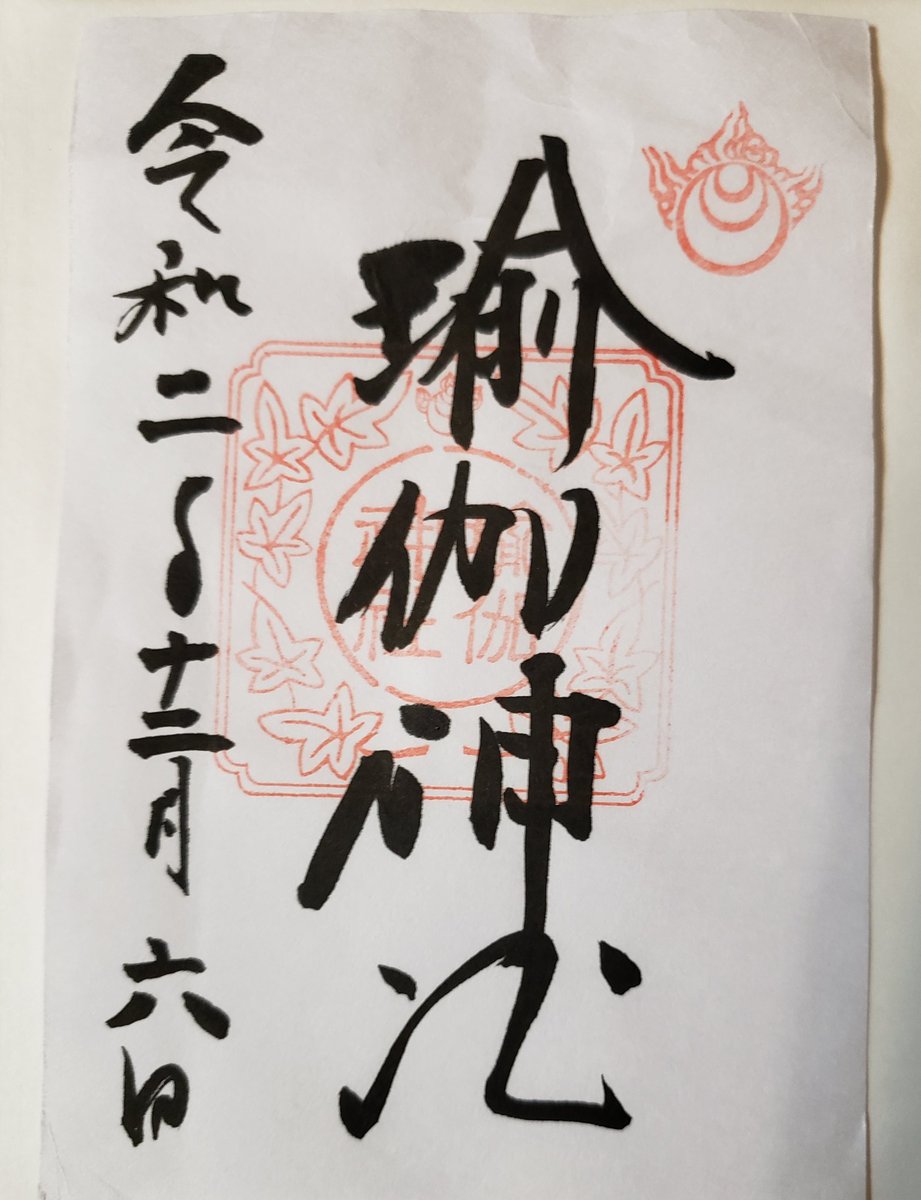 瑜伽神社
令和二年十二月六日
瑜伽
神社